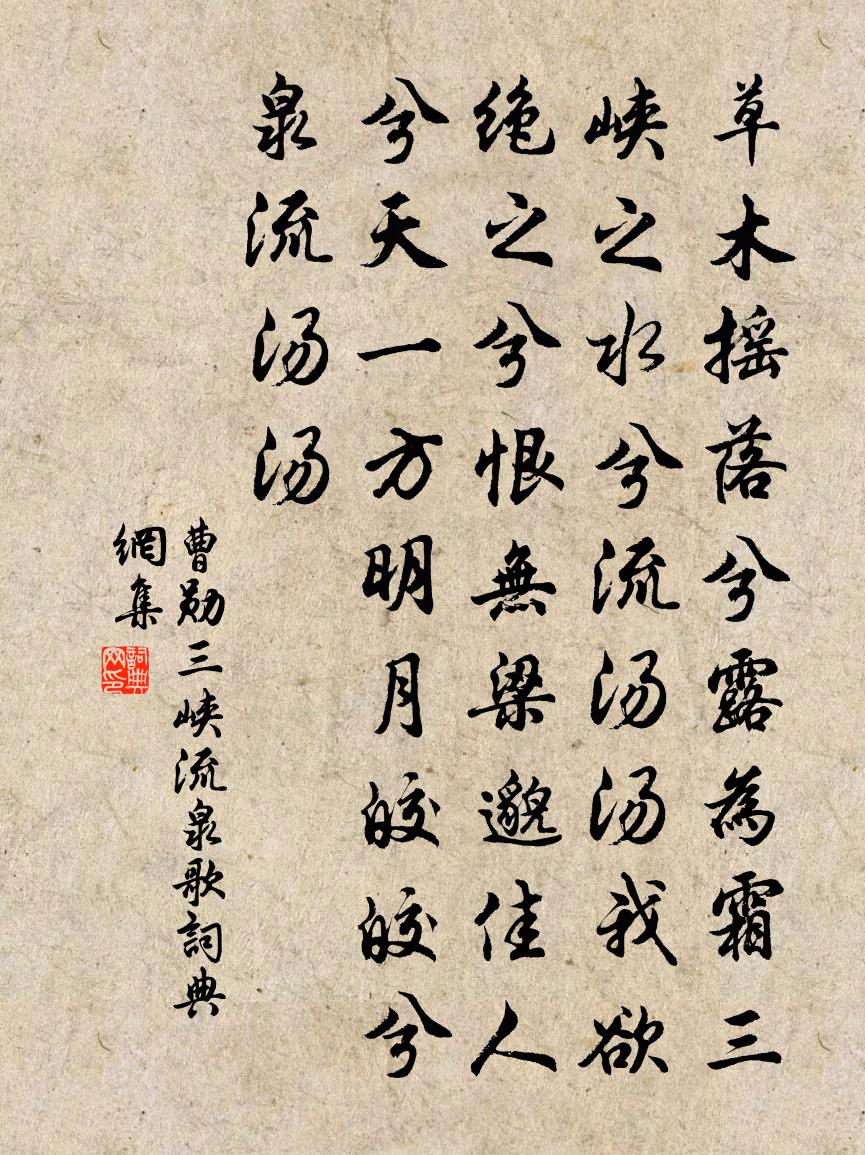 草木摇落兮露為霜三
峡之水兮流汤汤我欲
绝之兮恨無梁邈佳人
兮天一方明月皎皎兮
泉流汤汤
曹勋三峡流泉歌詞典
網集
詞典
网印